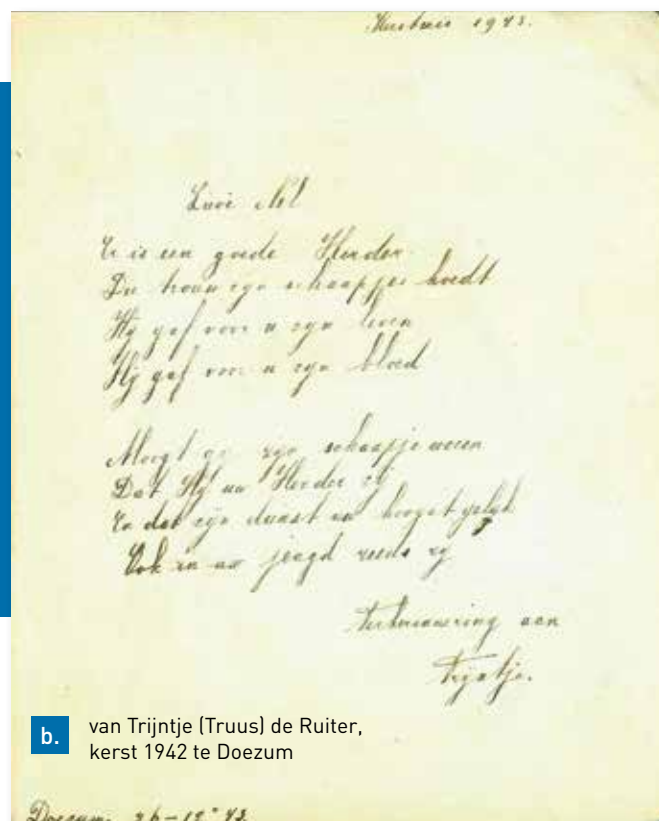 Kerstmis 1943.
Lieve Nel
Er is een goede Herder
Die trouw zyn schaapjes hoedt
Hy gaf voor u zyn leven
Hij gaf voor u zyn bloed
Moogt ge zyn schaapje wezen
Dat Hij uw Herder zij
En dat zijn dienst uw hoogst geluk
Ook in uw jeugd reeds zij
Ter herinnering aan
Trijntje.
b. van Trijntje (Truus) de Ruiter,
kerst 1942 te Doezum
Doezum 26-12-'43